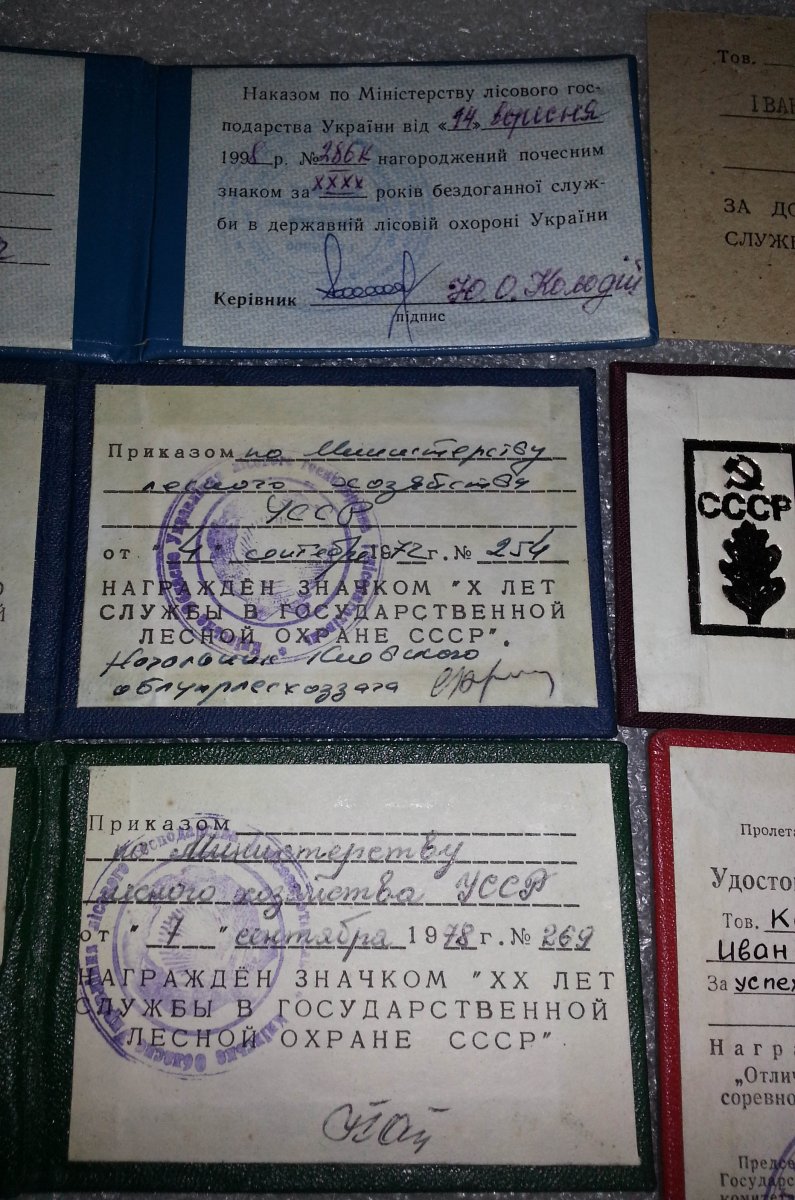 Наказом по Міністерству лісового гос-
подарства України від «14» вересня
1998 р. № 286к нагороджений почесним
знаком за XXXX років бездоганної служ-
би в державній лісовій охороні України
Керівник Ю. О. Колодій
підпис
Тов.
ІВАН
ЗА ДО
СЛУЖ
Приказом по Министерству
лесного хозяйства
УССР
от "4" сентября 1972 г. № 254
НАГРАЖДЁН ЗНАЧКОМ "X ЛЕТ
СЛУЖБЫ В ГОСУДАРСТВЕННОЙ
ЛЕСНОЙ ОХРАНЕ СССР".
Начальник Киевского
СССР
Приказом
по Министерству
лесного хозяйства УССР
от "1" сентября 1978 г. № 269
НАГРАЖДЁН ЗНАЧКОМ "XX ЛЕТ
СЛУЖБЫ В ГОСУДАРСТВЕННОЙ
ЛЕСНОЙ ОХРАНЕ СССР"
Пролета
Удосто
Тов. К
Иван
За успех
Награ
„Отли
соревно
Предсе
Государ
комите